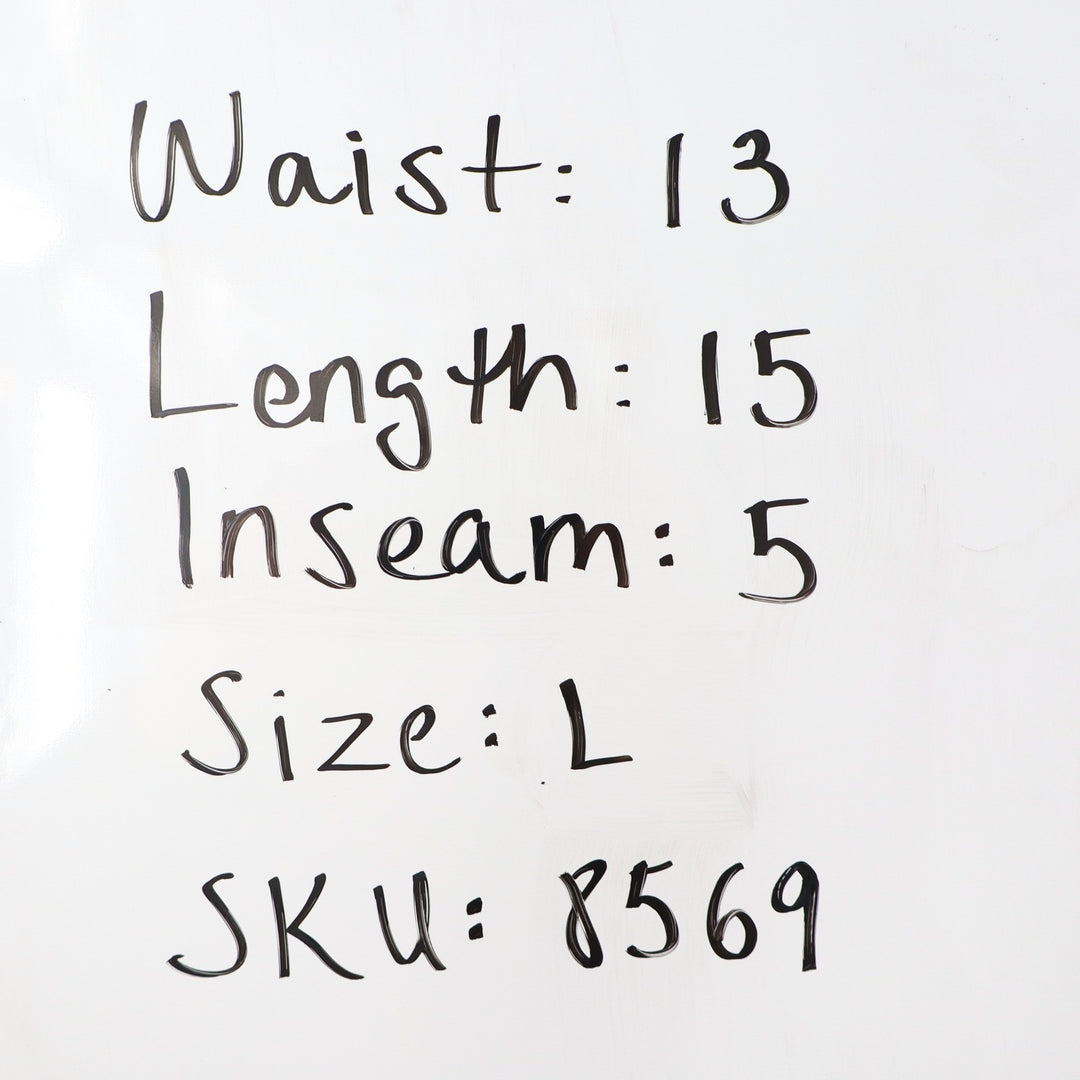 Waist: 13
Length: 15
Inseam: 5
Size: L
SKU: 8569